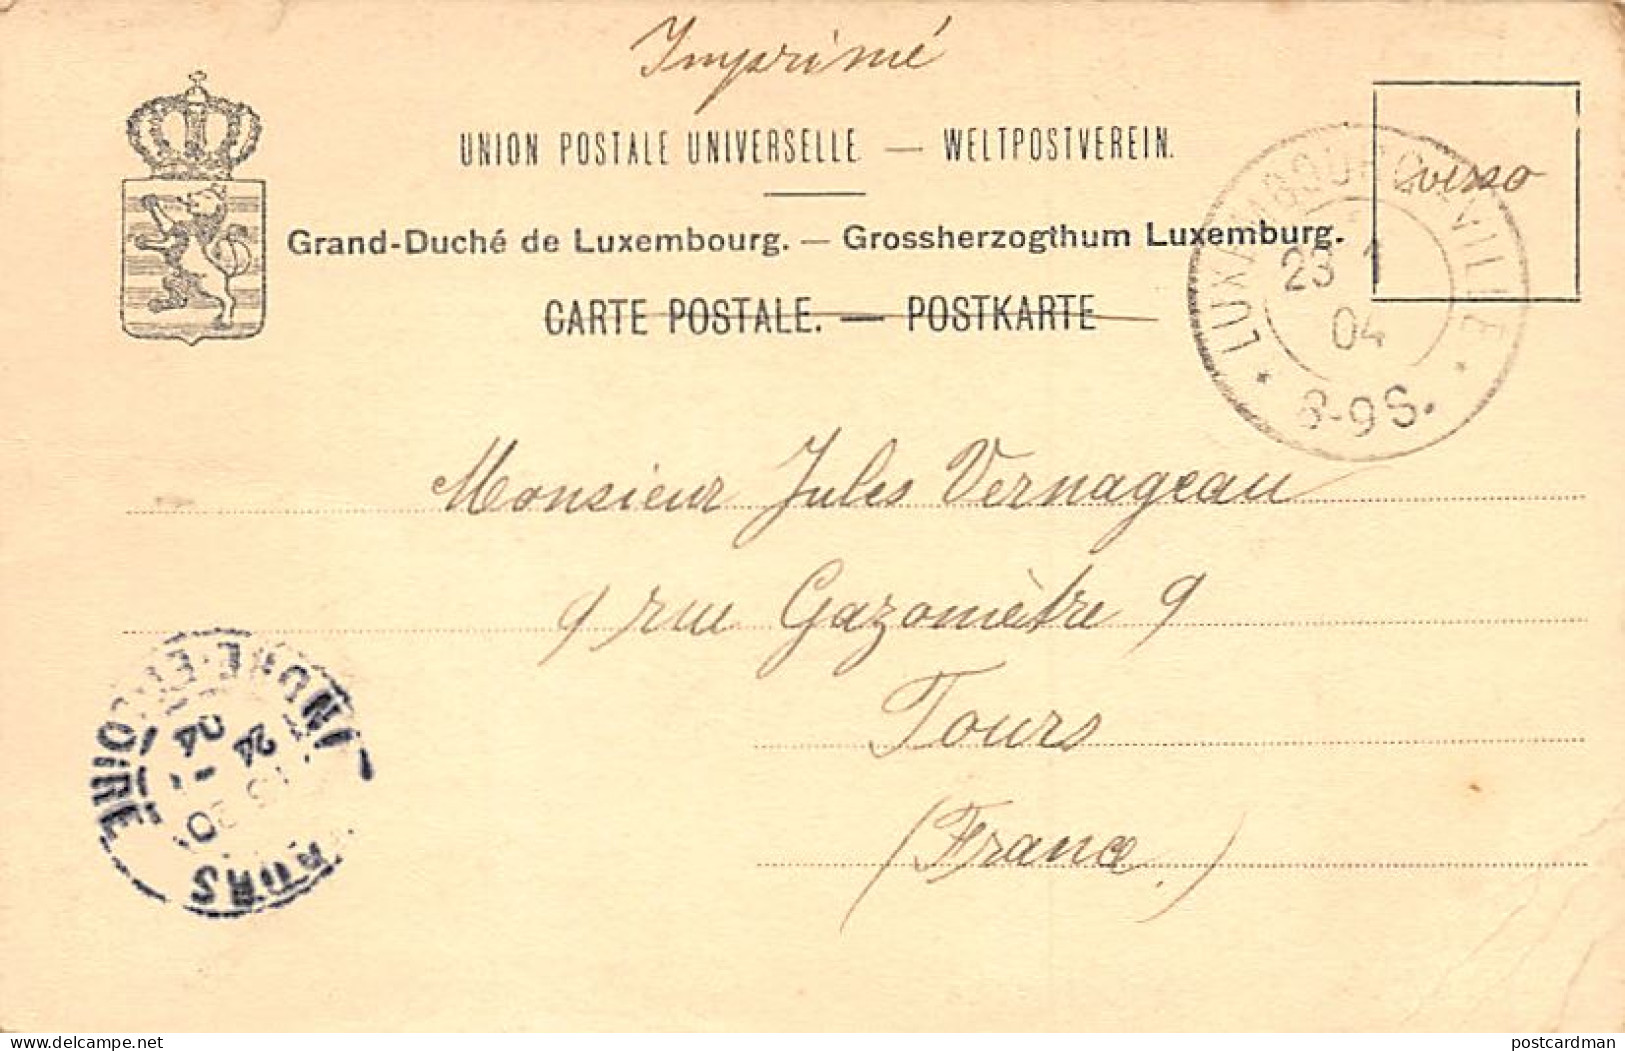 Imprimé
UNION POSTALE UNIVERSELLE. — WELTPOSTVEREIN.
verso
Grand-Duché de Luxembourg. — Grossherzogthum Luxemburg.
CARTE POSTALE. — POSTKARTE
LUXEMBOURG-VILLE
23 1
04
8-9 S.
Monsieur Jules Vernageau
9 rue Gazomètre 9
Tours
(France.)
TOURS
INDRE-ET-LOIRE
24
04
delcampe.net
postcardman